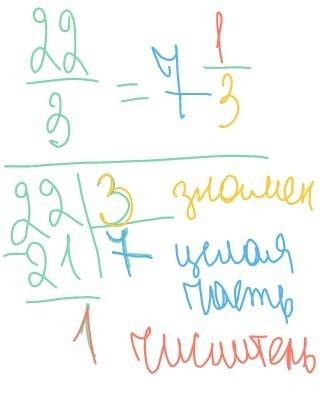 22/3 = 7 1/3
22 | 3 знамен
-21 | 7 целая
часть
1 числитель